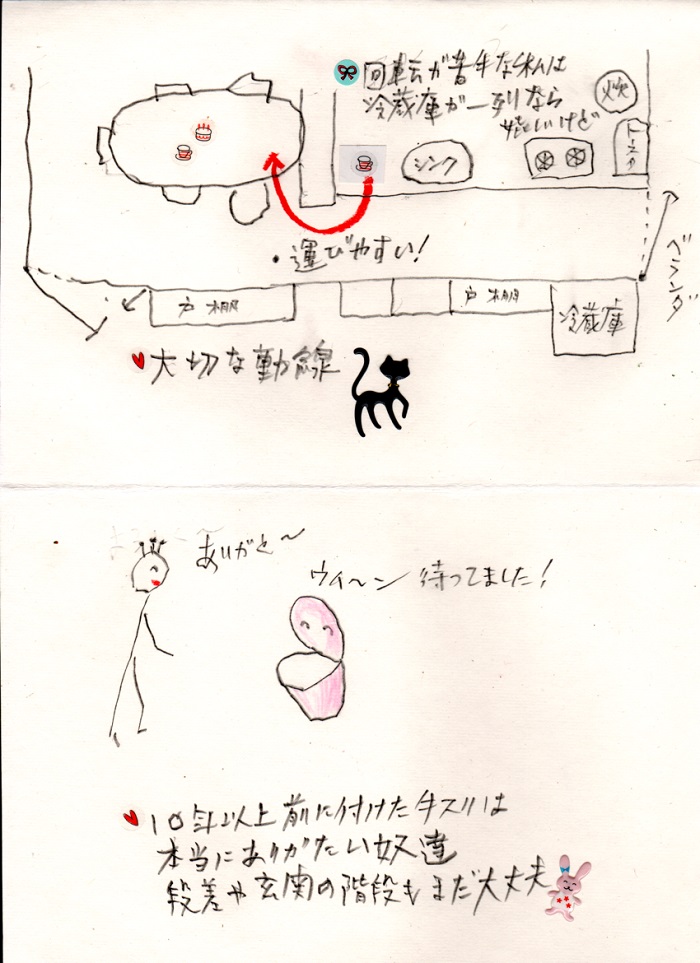 回転が苦手な私は
冷蔵庫が一列なら
嬉しいけど
炊
シンク
・運びやすい!
ベランダ
戸棚
戸棚
冷蔵庫
大切な動線
ありがと〜
ウイ〜ン 待ってました!
10年以上前に付けた手スリは
本当にありがたい奴達
段差や玄関の階段もまだ大丈夫